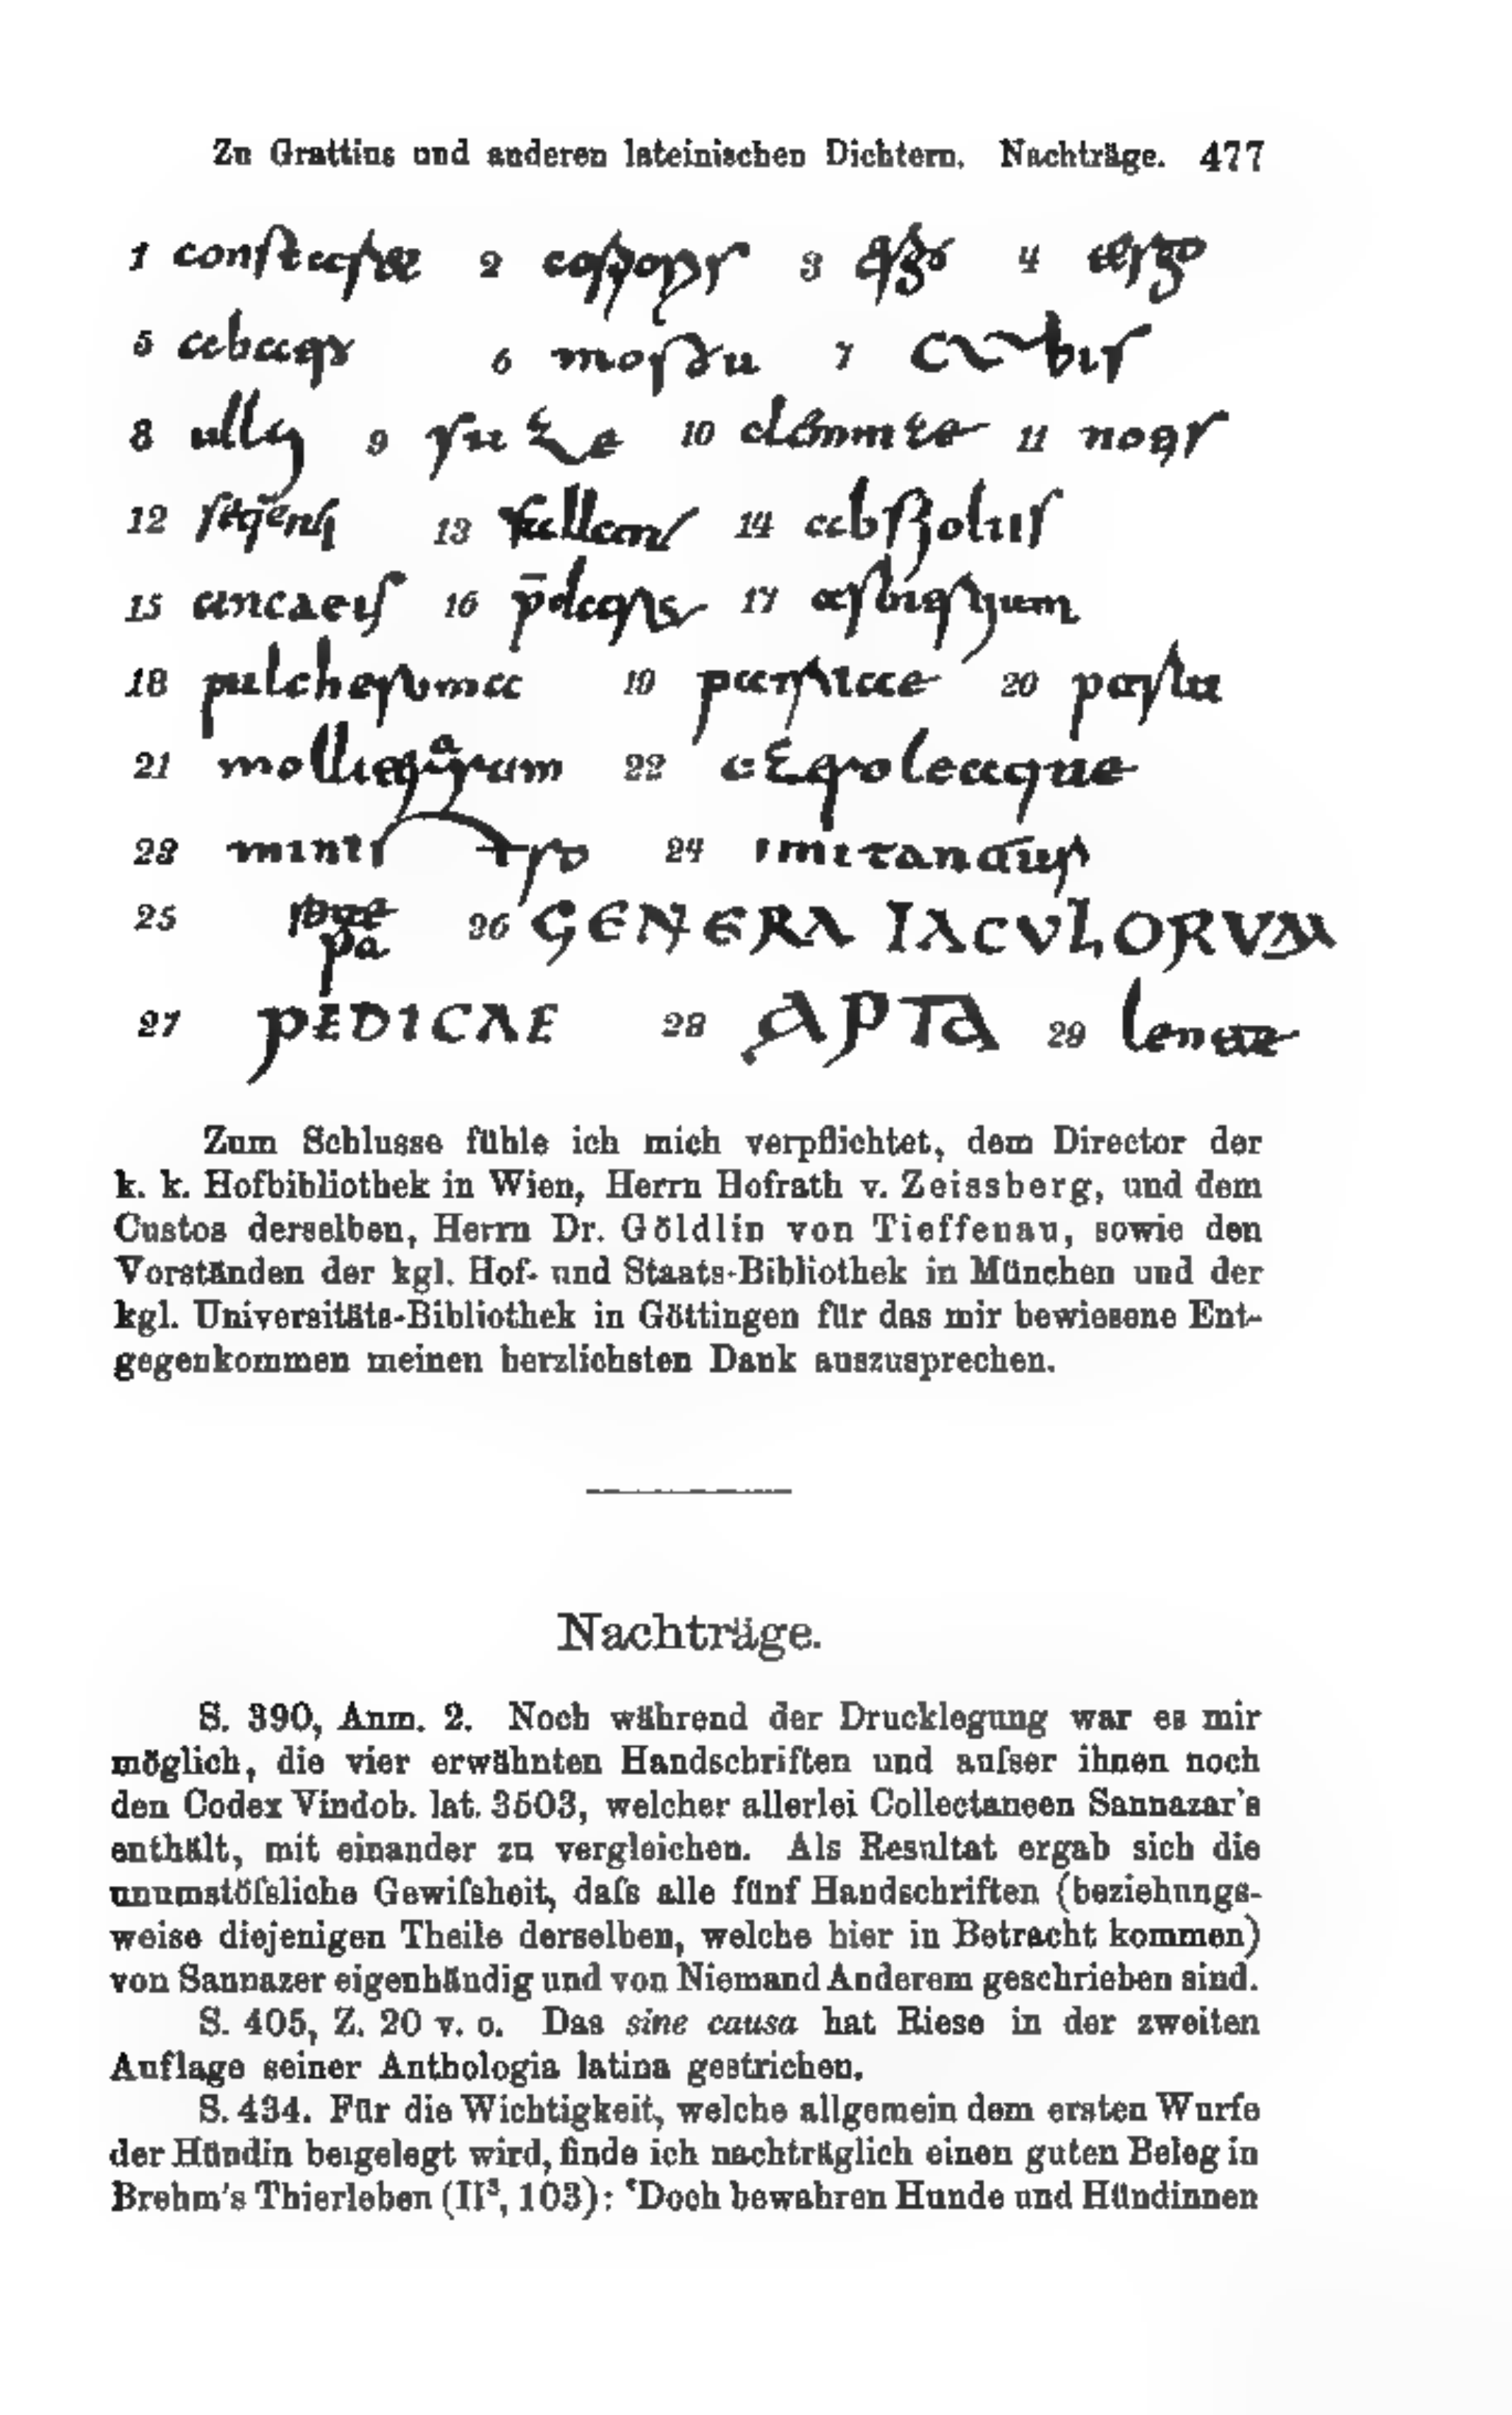 Zu Grattius und anderen lateinischen Dichtern. Nachträge. 477
1 2 3 4
5 6 7
8 9 10 11
12 13 14
15 16 17
18 pulcherrima 19 20
21 22
23 24
25 26 GENERA IACVLORVM
27 PEDICAE 28 APTA 29
Zum Schlusse fühle ich mich verpflichtet, dem Director der
k. k. Hofbibliothek in Wien, Herrn Hofrath v. Zeissberg, und dem
Custos derselben, Herrn Dr. Göldlin von Tieffenau, sowie den
Vorständen der kgl. Hof- und Staats-Bibliothek in München und der
kgl. Universitäts-Bibliothek in Göttingen für das mir bewiesene Ent-
gegenkommen meinen herzlichsten Dank auszusprechen.
Nachträge.
S. 390, Anm. 2. Noch während der Drucklegung war es mir
möglich, die vier erwähnten Handschriften und auſser ihnen noch
den Codex Vindob. lat. 3503, welcher allerlei Collectaneen Sannazar's
enthält, mit einander zu vergleichen. Als Resultat ergab sich die
unumstöſsliche Gewiſsheit, daſs alle fünf Handschriften (beziehungs-
weise diejenigen Theile derselben, welche hier in Betracht kommen)
von Sannazer eigenhändig und von Niemand Anderem geschrieben sind.
S. 405, Z. 20 v. o. Das sine causa hat Riese in der zweiten
Auflage seiner Anthologia latina gestrichen.
S. 434. Für die Wichtigkeit, welche allgemein dem ersten Wurfe
der Hündin beigelegt wird, finde ich nachträglich einen guten Beleg in
Brehm's Thierleben (II³, 103): 'Doch bewahren Hunde und Hündinnen